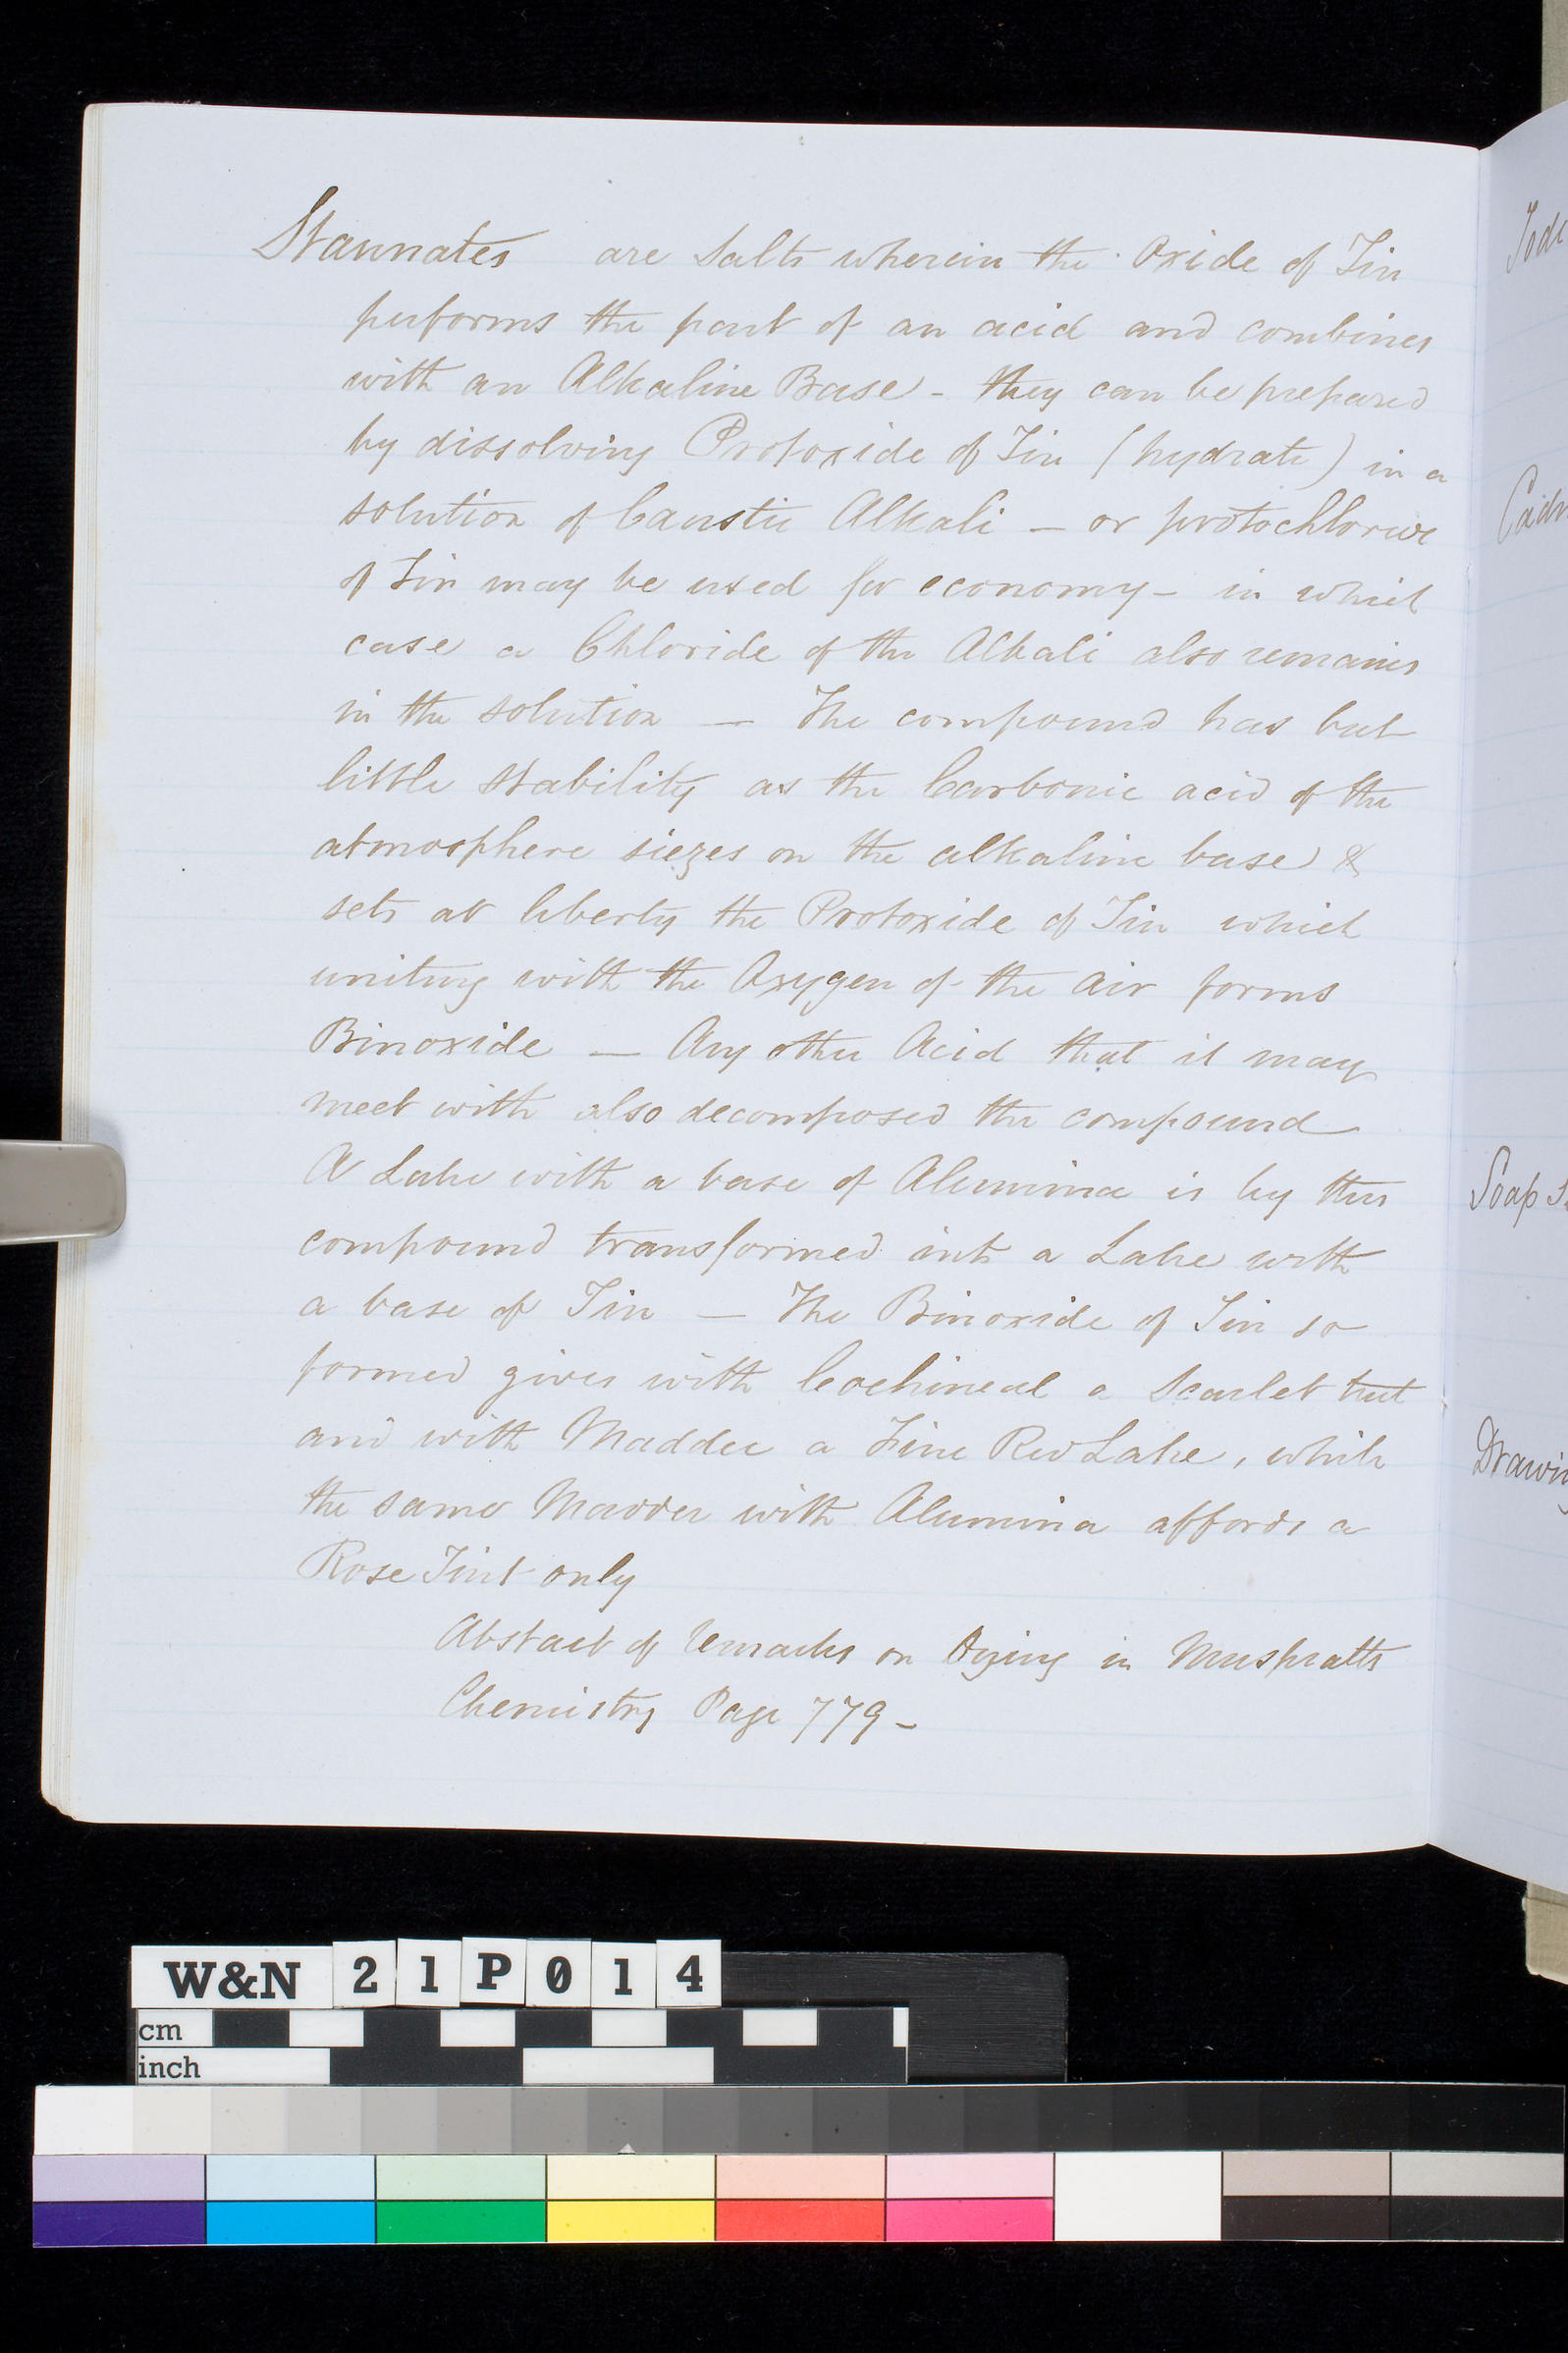 Stannates are Salts wherein the Oxide of Tin
performs the part of an acid and combines
with an Alkaline Base - they can be prepared
by dissolving Protoxide of Tin (hydrate) in a
solution of Caustic Alkali — or protochloride
of Tin may be used for economy - in which
case a Chloride of the Alkali also remains
in the solution — The compound has but
little stability as the Carbonic acid of the
atmosphere siezes on the alkaline base &
sets at liberty the Protoxide of Tin which
uniting with the Oxygen of the air forms
Binoxide — Any other Acid that it may
meet with also decomposed the compound
A Lake with a base of Alumina is by this
compound transformed into a Lake with
a base of Tin — The Binoxide of Tin so
formed gives with Cochineal a Scarlet tint
and with Madder a Fine Red Lake, while
the same Madder with Alumina affords a
Rose Tint only
Abstact of Remarks on Dying in Muspratts
Chemistry Page 779 -
Soap
W&N 21P014
cm
inch